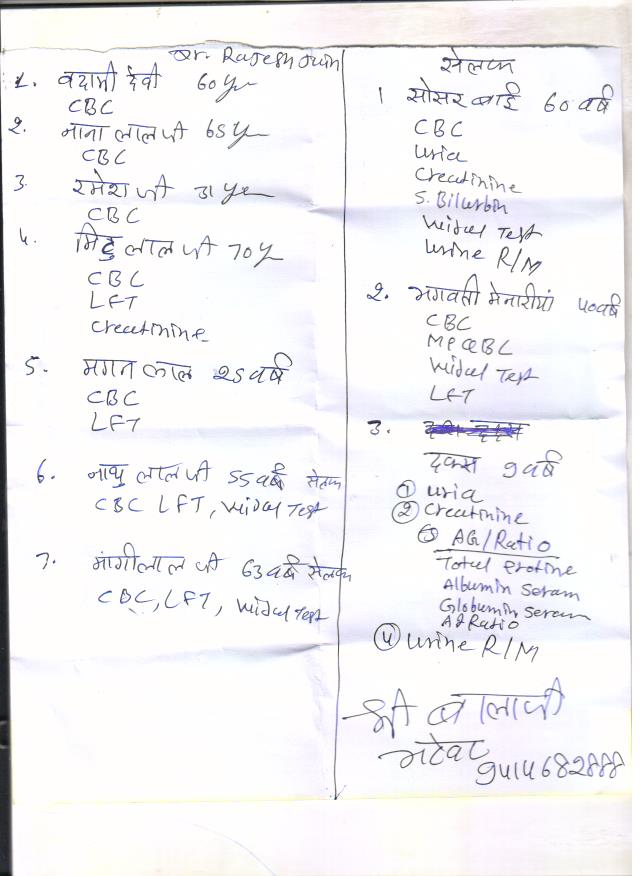 Dr. Rajesh Jain
1. बदामी देवी 60 yr
CBC
2. नाना लाल जी 65 yr
CBC
3. रमेश जी 31 yr
CBC
4. मिठु लाल जी 70 yr
CBC
LFT
Creatinine
5. मगन लाल 25 वर्ष
CBC
LFT
6. नाथु लाल जी 55 वर्ष सेलक
CBC LFT, Widal Test
7. मांगीलाल जी 63 वर्ष सेलक
CBC, LFT, Widal Test
सेलक
1 सोसर बाई 60 वर्ष
CBC
Uria
Creatinine
S. Bilurbin
Widal Test
Urine R/M
2. भगवती मेनारीयां 40 वर्ष
CBC
MP QBC
Widal Test
LFT
3.
दक्स 9 वर्ष
① Uria
② Creatinine
③ AG/Ratio
Total Protine
Albumin Seram
Globumin Seram
AG Ratio
④ Urine R/M
श्री बालाजी
9414682888